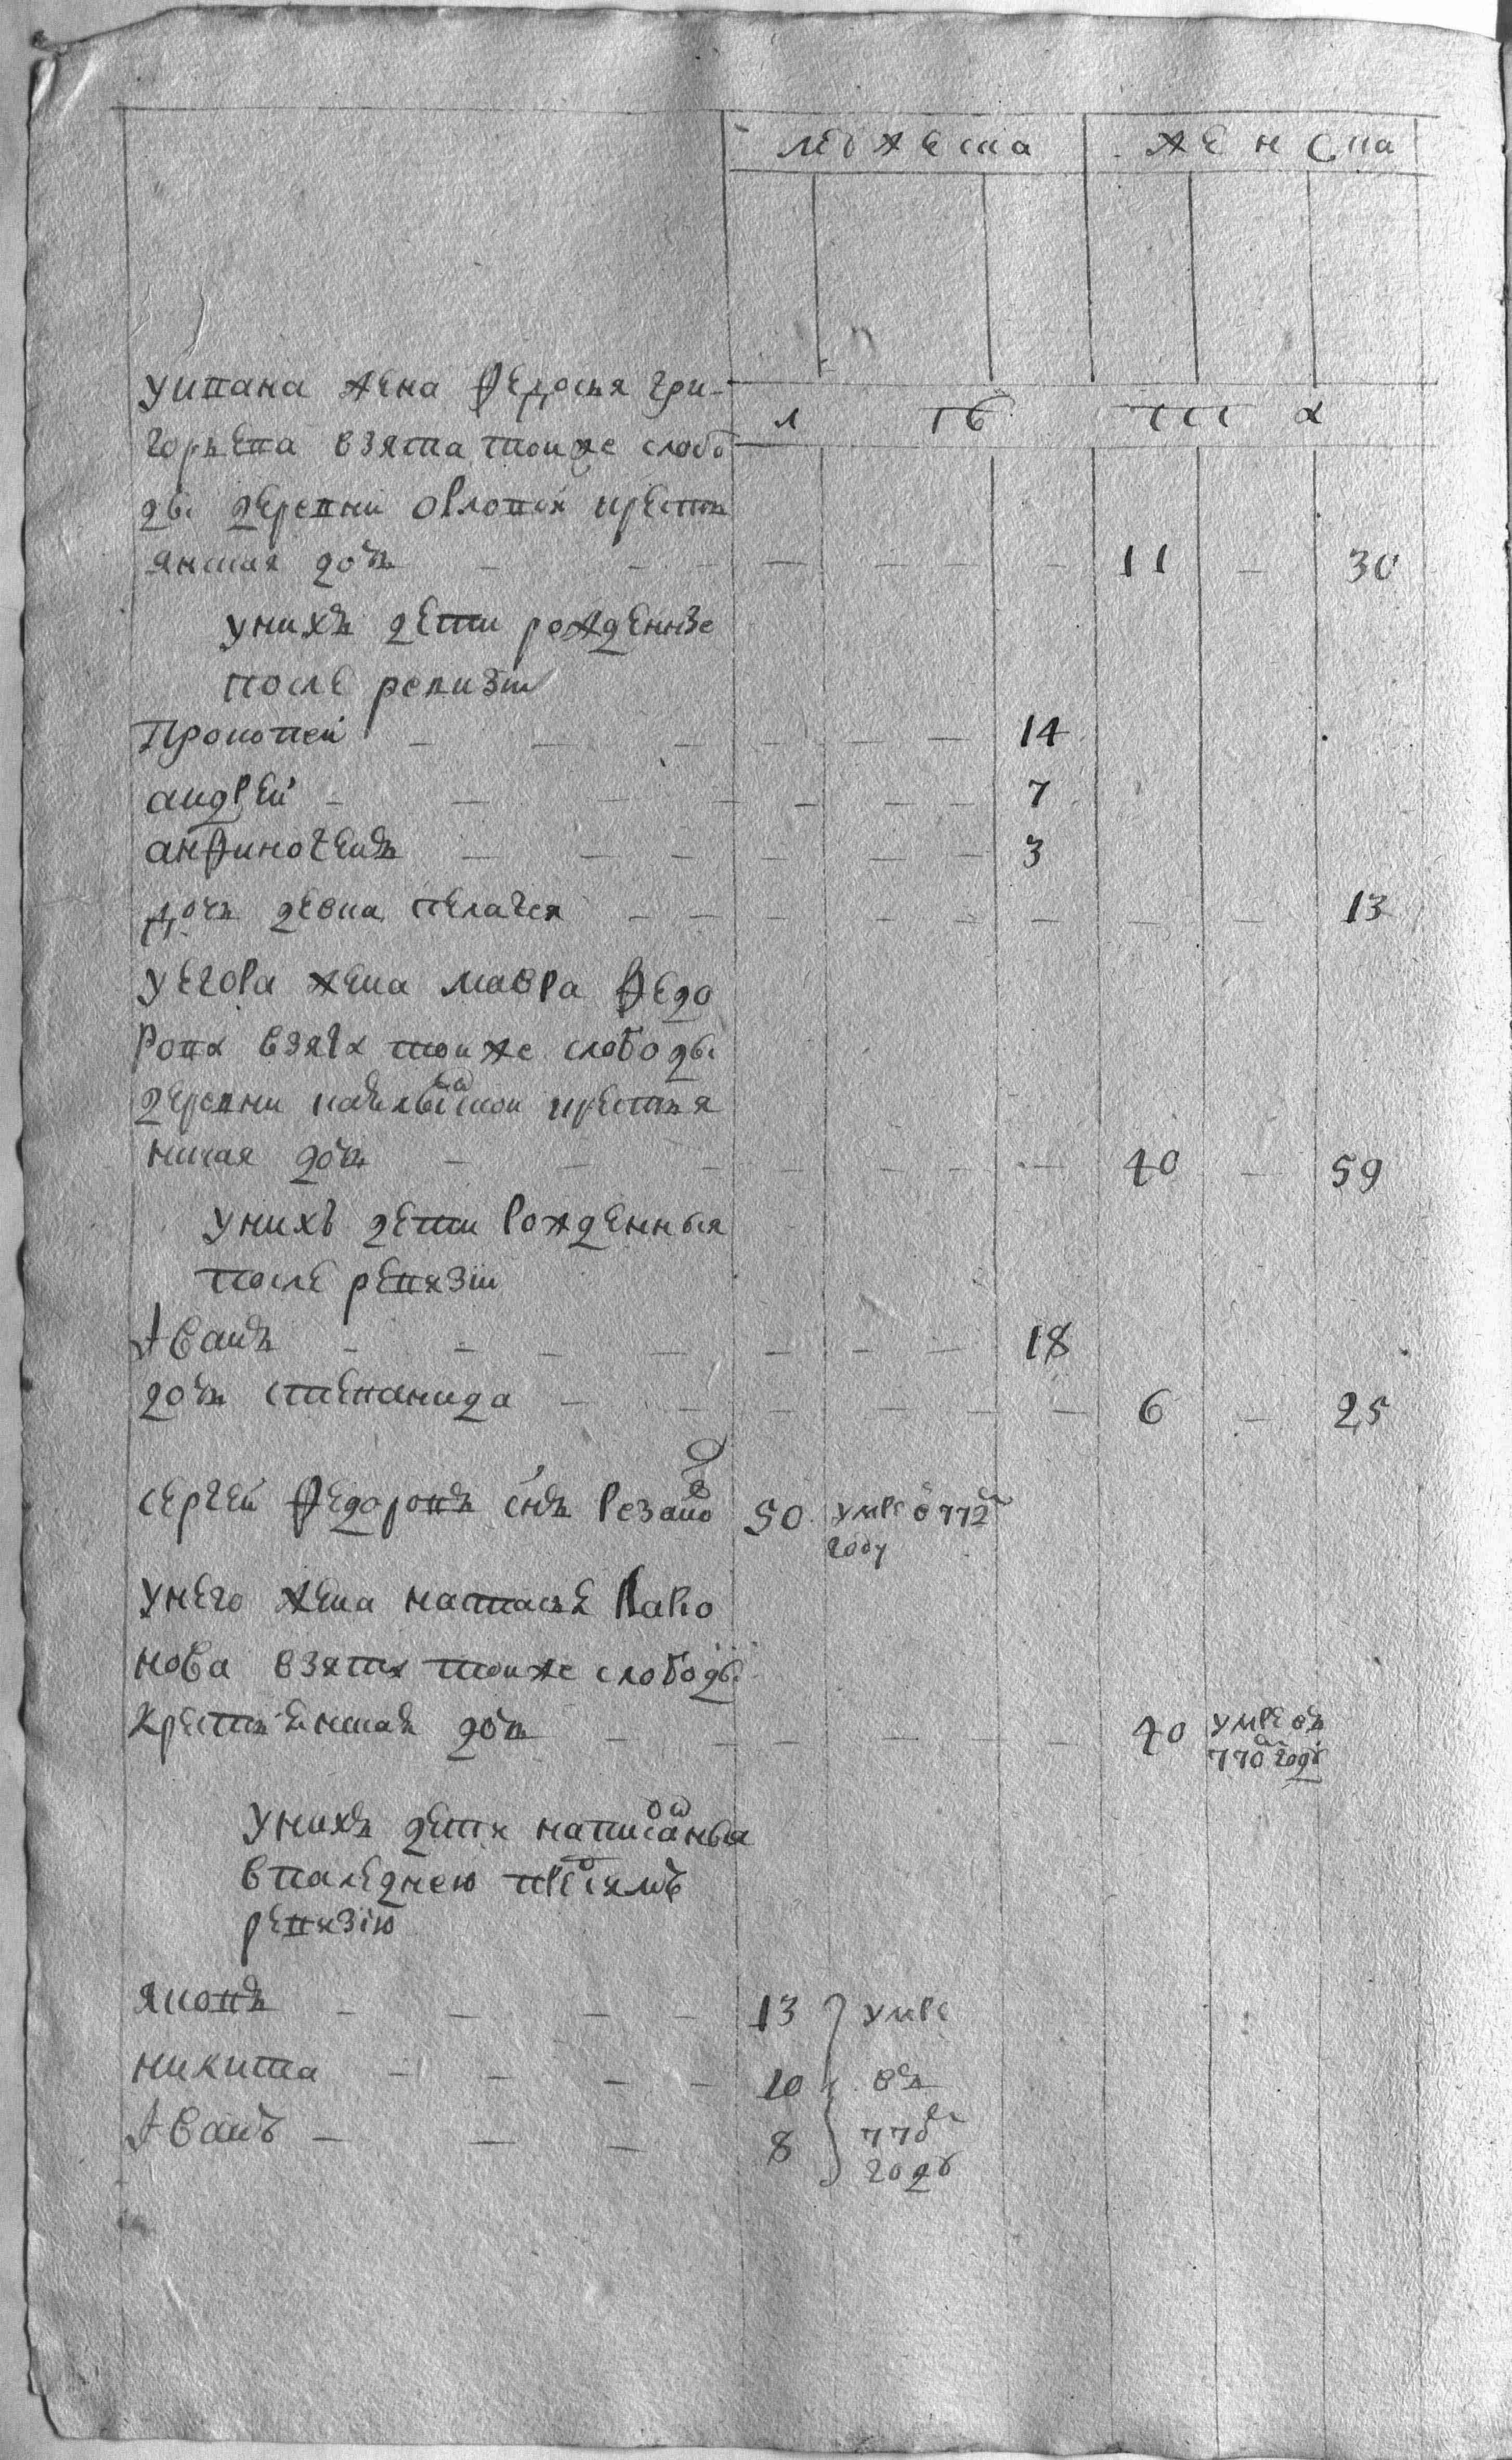 мужеска женска
л тъ
уипана жена федосья гри-
горьева взята тоиже слобо
ды деревни орловои крестья
янская дочь 11 30
унихъ дети рожденные
после ревизи
Прокопеи 14
андреи 7
анфиногенъ 3
Дочь девка пелагея 13
уегора жена мавра федо
рова взята тоиже слободы
деревни крестья
нская дочь 40 59
унихъ дети рожденныя
после ревизи
Иванъ 18
дочь степанида 6 25
сергеи федоровъ снъ резано 50 умре в 772
году
унего жена настасья
нова взята тоиже слободы
крестьенская дочь 40 умре въ
770 году
унихъ дети написаныя
впоследнею предсимъ
ревизию
яковъ 13 умре
никита 10 въ
Иванъ 8 770
году